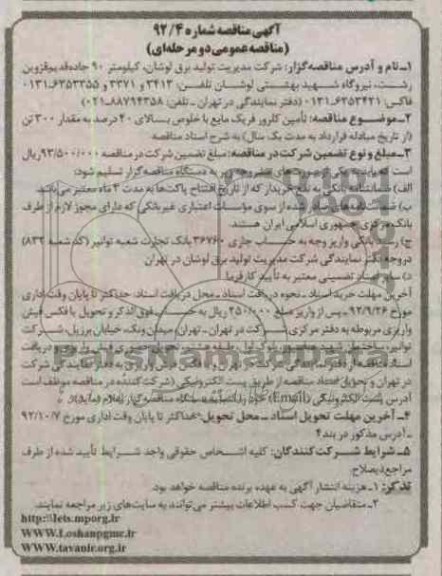 آگهی مناقصه شماره ۹۲/۴
(مناقصه عمومی دو مرحله‌ای)
۱ـ نام و آدرس مناقصه‌گزار: شرکت مدیریت تولید برق لوشان، کیلومتر ۹۰ جاده قدیم قزوین
رشت، نیروگاه شهید بهشتی لوشان تلفن: ۳۴۱۳ و ۳۳۷۱ و ۶۳۵۳۳۵۵-۰۱۳۱
فاکس: ۶۳۵۳۴۲۱-۰۱۳۱ (دفتر نمایندگی در تهران ـ تلفن: ۸۸۷۹۴۳۵۸-۰۲۱)
۲ـ موضوع مناقصه: تأمین کلرور فریک مایع با خلوص بالای ۴۰ درصد به مقدار ۳۰۰ تن
(از تاریخ مبادله قرارداد به مدت یک سال) به شرح اسناد مناقصه.
۳ـ مبلغ و نوع تضمین شرکت در مناقصه: مبلغ تضمین شرکت در مناقصه ۹۳/۵۰۰/۰۰۰ ریال
است که باید به یکی از صورت‌های مشروحه زیر به دستگاه مناقصه‌گزار تسلیم شود:
الف) ضمانتنامه بانکی به نفع خریدار که از تاریخ افتتاح پاکت‌ها به مدت ۳ ماه معتبر می‌باشد.
ب) ضمانت‌نامه‌های صادر شده از سوی مؤسسات اعتباری غیربانکی که دارای مجوز لازم از طرف
بانک مرکزی جمهوری اسلامی ایران هستند.
ج) رسید بانکی واریز وجه به حساب جاری ۳۶۷۶۰ بانک تجارت شعبه توانیر (کد شعبه ۸۳۲)
در وجه دفتر نمایندگی شرکت مدیریت تولید برق لوشان در تهران
د) سایر اسناد تضمینی معتبر به تأیید کارفرما
آخرین مهلت خرید اسناد ـ نحوه دریافت اسناد ـ محل دریافت اسناد: حداکثر تا پایان وقت اداری
مورخ ۹۲/۹/۲۶ ـ پس از واریز مبلغ ۴۵۰/۰۰۰ ریال به حساب فوق‌الذکر و تحویل یا فکس فیش
واریزی مربوطه به دفتر مرکزی شرکت در تهران ـ تهران، میدان ونک، خیابان برزیل، شرکت
توانیر، ساختمان شهید عباسپور، بلوک اول، طبقه هشتم، تحویل حضوری فیش واریزی و دریافت
اسناد مناقصه از دفتر نمایندگی شرکت در تهران و یا فکس فیش واریزی به دفتر نمایندگی شرکت
در تهران و تحویل اسناد مناقصه از طریق پست الکترونیکی (شرکت‌کننده در مناقصه موظف است
آدرس پست الکترونیکی (Email) خود را به دستگاه مناقصه‌گزار اعلام نماید.)
۴ـ آخرین مهلت تحویل اسناد ـ محل تحویل: حداکثر تا پایان وقت اداری مورخ ۹۲/۱۰/۷
ـ آدرس مذکور در بند ۴
۵ـ شرایط شرکت‌کنندگان: کلیه اشخاص حقوقی واجد شرایط تأیید شده از طرف
مراجع ذیصلاح.
تذکر: ۱ـ هزینه انتشار آگهی به عهده برنده مناقصه خواهد بود.
۲ـ متقاضیان جهت کسب اطلاعات بیشتر می‌توانند به سایت‌های زیر مراجعه نمایند.
http://Iets.mporg.Ir
WWW.Loshanpgmc.Ir
WWW.tavanir.org.Ir
ParsNamadData